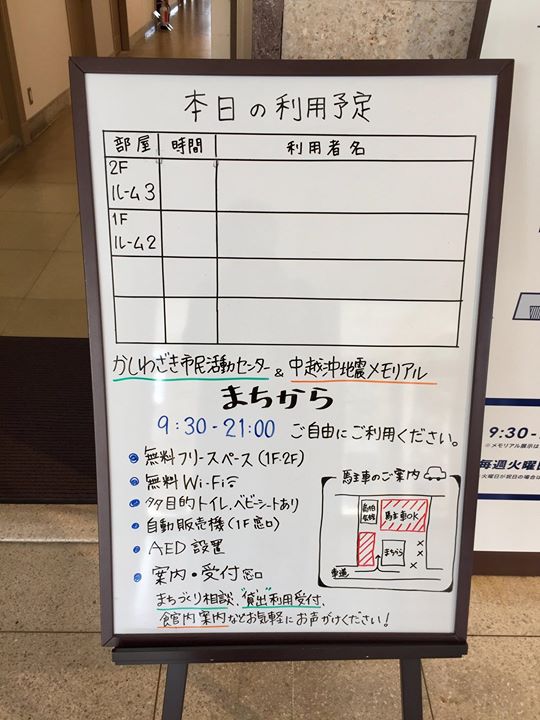 本日の利用予定
部屋 時間 利用者名
2F
ルーム3
1F
ルーム2
かしわざき市民活動センター & 中越沖地震メモリアル
まちから
9:30-21:00 ご自由にご利用ください。
無料フリースペース(1F・2F)
無料Wi-Fi
多目的トイレ、ベビーシートあり
自動販売機(1F窓口)
AED設置
案内・受付窓口
まちづり相談、"貸出"利用受付、
館内案内などお気軽にお声がけください!
駐車のご案内
駐車OK
まちから
歩道
9:30-
※メモリアル展示は
毎週火曜日
火曜日が祝日の場合は